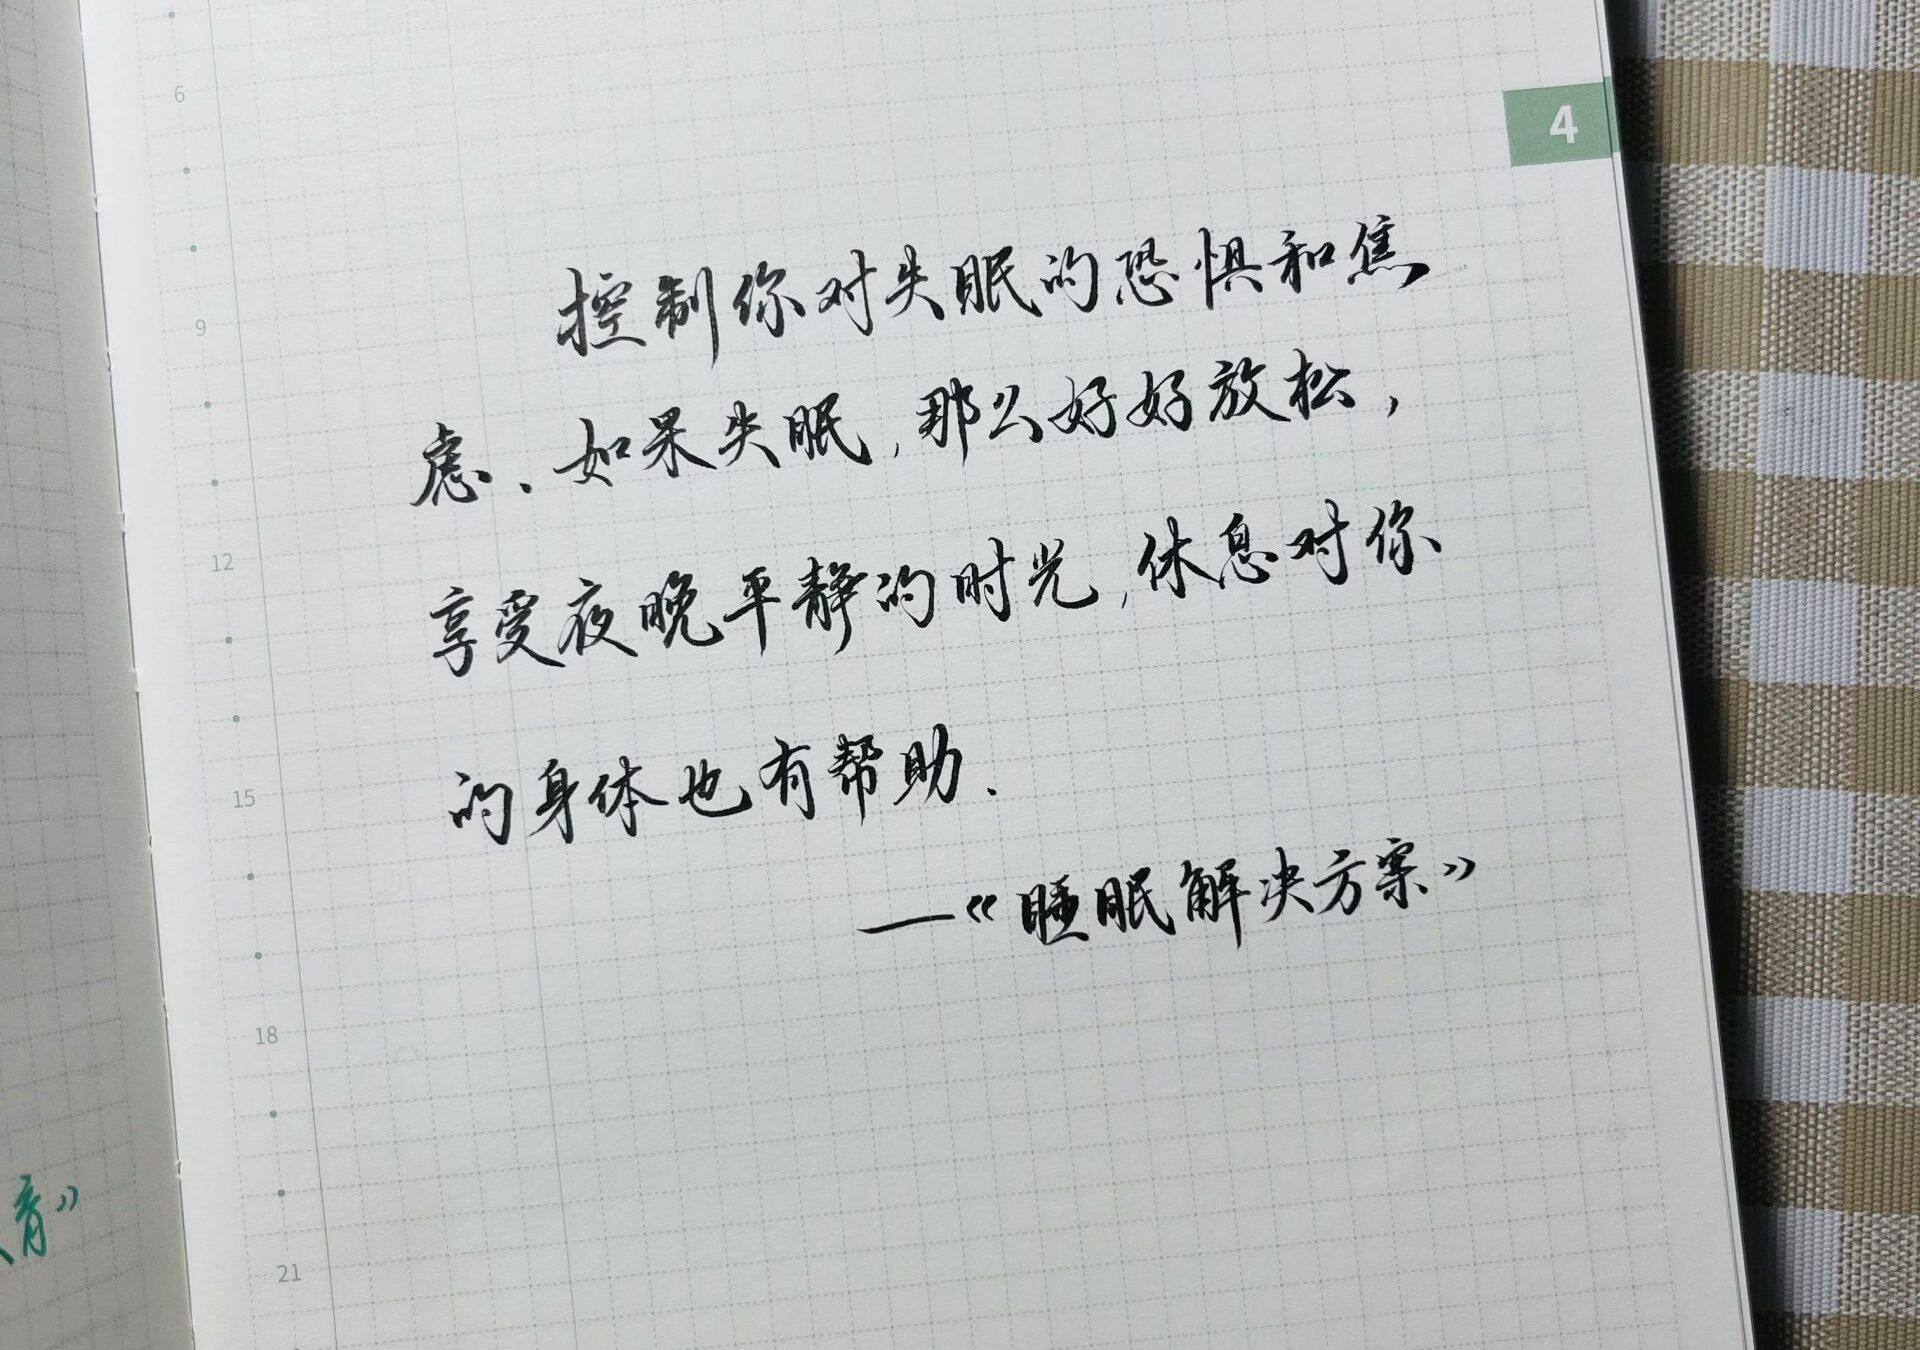 4
6
控制你对失眠的恐惧和焦
9
虑.如果失眠,那么好好放松,
12
享受夜晚平静的时光,休息对你
15
的身体也有帮助.
—《睡眠解决方案》
18
21
》